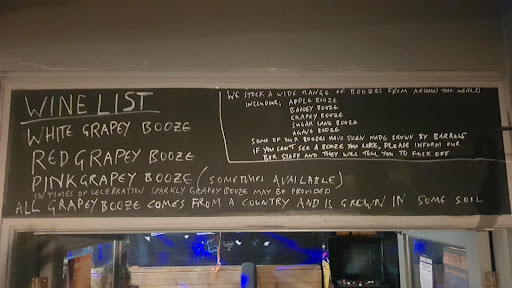 WINE LIST
WHITE GRAPEY BOOZE
RED GRAPEY BOOZE
PINK GRAPEY BOOZE (SOMETIMES AVAILABLE)
IN TIMES OF CELEBRATION SPARKLY GRAPEY BOOZE MAY BE PROVIDED
ALL GRAPEY BOOZE COMES FROM A COUNTRY AND IS GROWN IN SOME SOIL
WE STOCK A WIDE RANGE OF BOOZES FROM AROUND THE WORLD
INCLUDING; APPLE BOOZE
BARLEY BOOZE
GRAPEY BOOZE
SUGAR CANE BOOZE
AGAVE BOOZE
SOME OF OUR BOOZES HAVE BEEN MADE BROWN BY BARRELS
IF YOU CAN'T SEE A BOOZE YOU LIKE, PLEASE INFORM OUR
BAR STAFF AND THEY WILL TELL YOU TO FUCK OFF